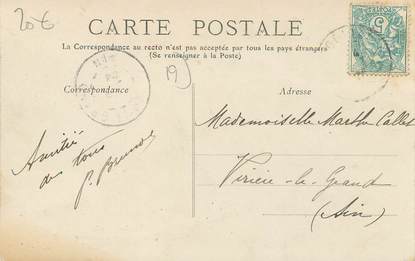 20€
CARTE POSTALE
La Correspondance au recto n'est pas acceptée par tous les pays étrangers
(Se renseigner à la Poste)
19
Correspondance
Adresse
Amitié
de tous
P. Brun
Mademoiselle Marthe Callet
Virieu-le-Grand
(Ain)
5